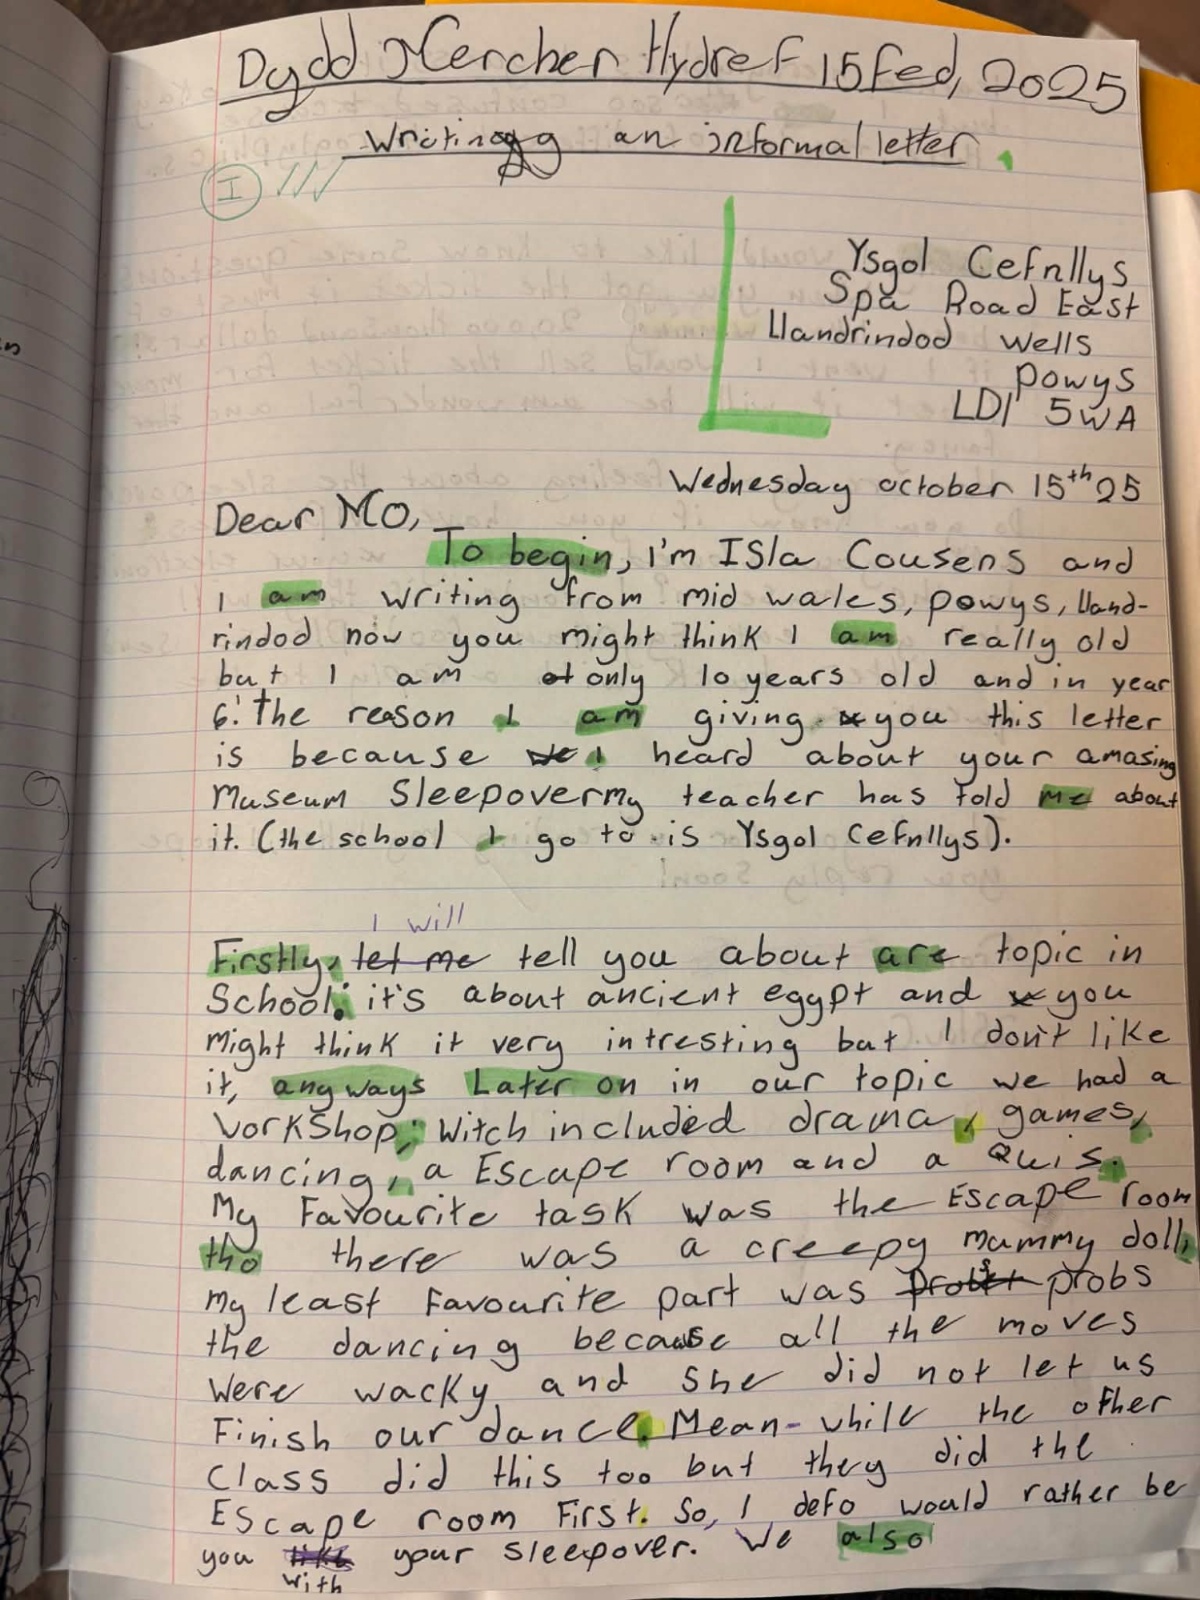 Dydd Mercher Hydref 15fed, 2025
Writing an informal letter.
I
Ysgol Cefnllys
Spa Road East
Llandrindod Wells
powys
LD1 5WA
Wednesday october 15th 25
Dear MO,
To begin, i'm ISla Cousens and
I am writing from mid wales, powys, lland-
rindod now you might think I am really old
but I am only 10 years old and in year
6! The reason I am giving you this letter
is because I heard about your amasing
Museum Sleepover my teacher has told me about
it. (the school I go to is Ysgol Cefnllys).
I will
Firstly, let me tell you about are topic in
School: it's about ancient egypt and you
might think it very intresting but I don't like
it, anyways Later on in our topic we had a
WorkShop; Witch included drama, games,
dancing, a Escape room and a Quis.
My Favourite task was the Escape room
tho there was a creepy mummy doll,
my least Favourite part was probs
the dancing because all the moves
were wacky and She did not let us
Finish our dance. Mean-while the other
Class did this too but they did the
Escape room First. So, I defo would rather be
you your sleepover. We also
with